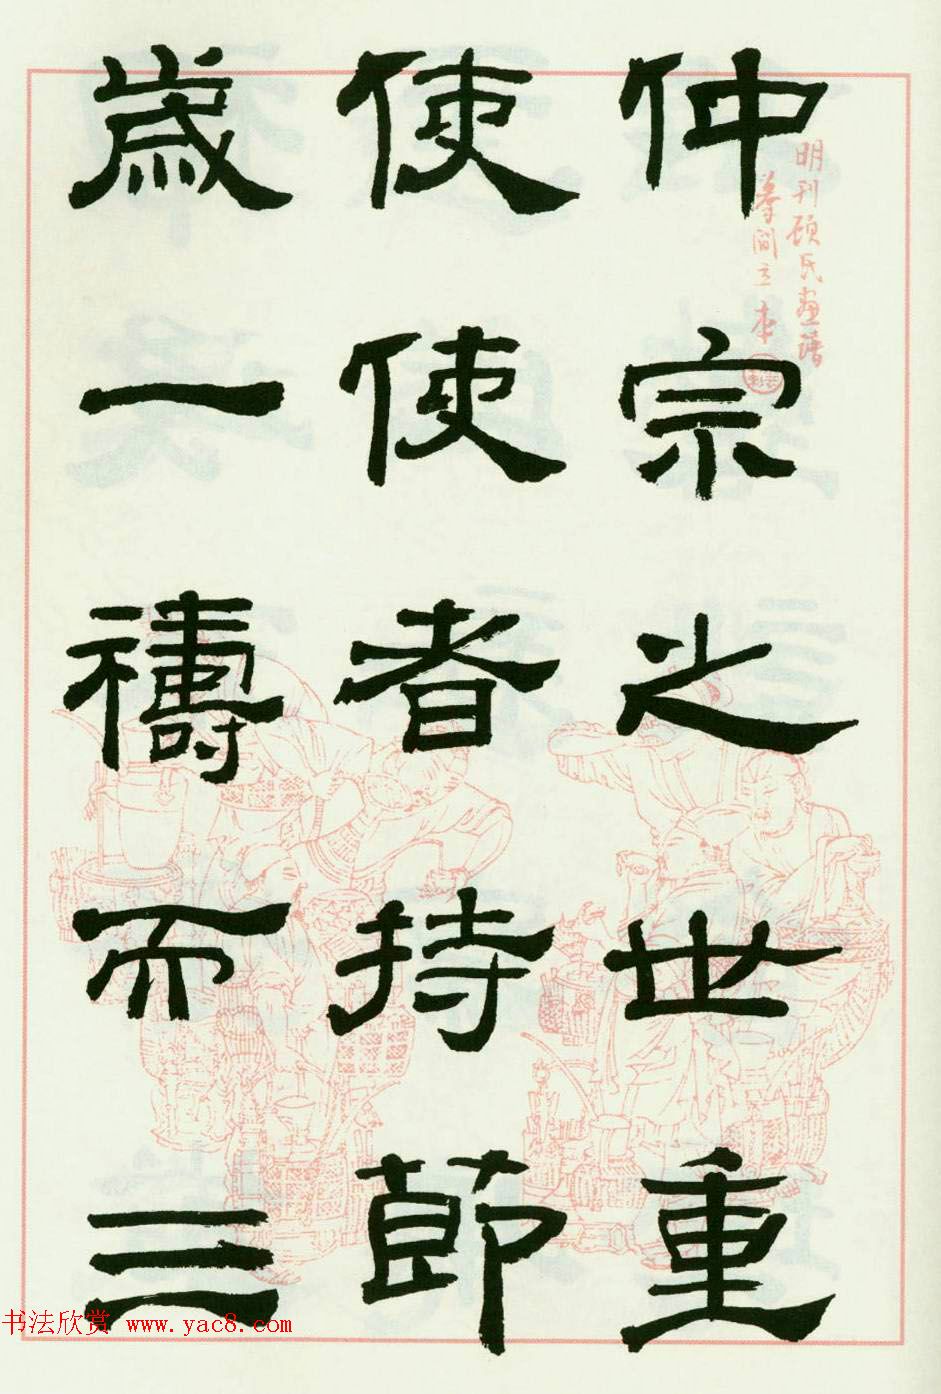 仲宗之世重
使使者持節
歲一禱而三
明刊顾氏画谱
摹阎立本
书法欣赏 www.yac8.com